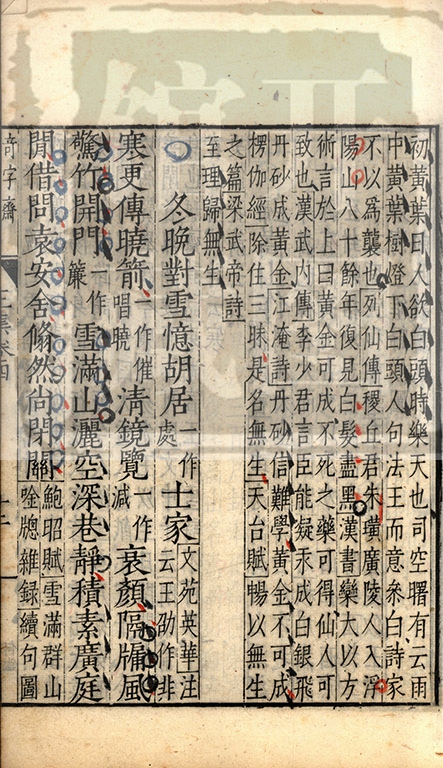 初黃葉日人欲白頭時樂天也司空曙有云雨
中黃葉樹燈下白頭人句法王而意參白詩家
不以爲襲也列仙傳稷丘君朱璜廣陵人入浮
陽山八十餘年復見白髮盡黑漢書欒大以方
術言於上曰黃金可成不死之藥可得仙人可
致也漢武內傳李少君言臣能凝汞成白銀飛
丹砂成黃金江淹詩丹砂信難學黃金不可成
楞伽經除住三昧是名無生天台賦暢以無生
之篇梁武帝詩
至理歸無生
冬晚對雪憶胡居一作處士家文苑英華注云王劭作非
寒更傳曉箭一作催唱曉清鏡覽一作減衰顏隔牖風
驚竹開門一作簾雪滿山灑空深巷靜積素廣庭
閒借問袁安舍翛然尚閉關鮑昭賦雪滿群山唫牕雜録續句圖
奇字齋